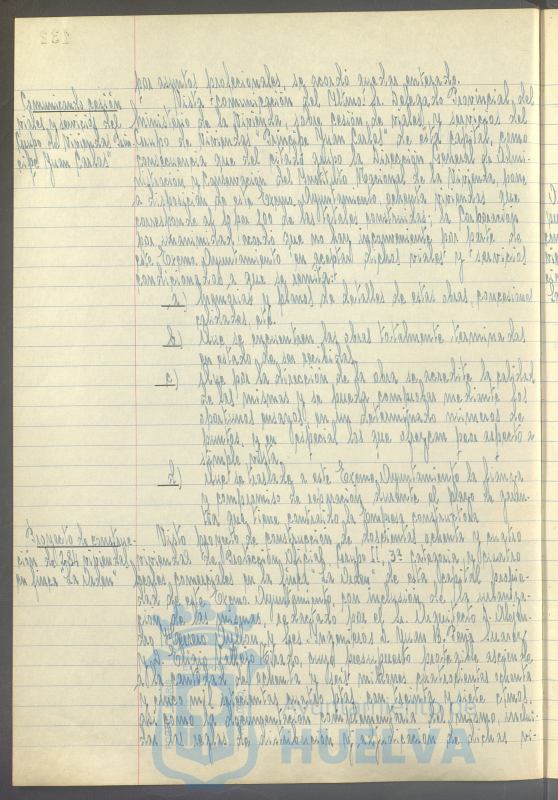 132
por asuntos profesionales, se acordó quedar enterado.
Comunicando cesión
viales y servicios del
Grupo de Viviendas Prin-
cipe "Juan Carlos"
Vista comunicación del Iltmo. Sr. Delegado Provincial del
Ministerio de la Vivienda sobre cesión de viales y servicios del
Grupo de Viviendas "Principe Juan Carlos" de esta capital, como
consecuencia que del citado grupo la Dirección General de Admi-
nistración y Conservación del Instituto Nacional de la Vivienda, pone
a disposición de este Excmo. Ayuntamiento ochenta viviendas que
corresponde al 10 por 100 de las totales construidas; la Corporación
por unanimidad acordó que no hay inconveniente por parte de
este Excmo. Ayuntamiento en aceptar dichos viales y servicios
condicionados a que se remita:
a) Memorias y planos de detalles de estas obras,
calidades, etc.
b) Que se encuentren las obras totalmente terminadas
en estado de ser recibidas.
c) Que por la dirección de la obra se acredite la calidad
de las mismas y se pueda comprobar mediante los
oportunos ensayos en un determinado número de
puntos, y en especial los que ofrezcan peor aspecto a
simple vista.
d) Que se traslade a este Excmo. Ayuntamiento la fianza
y compromiso de reparación durante el plazo de garan-
tía que tiene contraido la Empresa constructora
Proyecto de construc-
ción de 284 viviendas
en finca "La Orden"
Visto proyecto de construcción de doscientas ochenta y cuatro
viviendas de Protección Oficial, Grupo II, 3ª categoría y cuatro
locales comerciales en la finca "La Orden" de esta capital propie-
dad de este Excmo. Ayuntamiento, con inclusión de la urbaniza-
ción de las mismas, redactado por el Sr. Arquitecto D. Alejan-
dro Herrero Ayllón, y los Ingenieros D. Juan B. Peña Suarez
y D. cuyo presupuesto protegible asciende
a la cantidad de ochenta y seis millones ochenta
y cinco mil ptas. con treinta y siete ctmos.
así como la documentación complementaria del mismo,
las de y adjudicación de dichas vi-
Ayuntamiento de
HUELVA